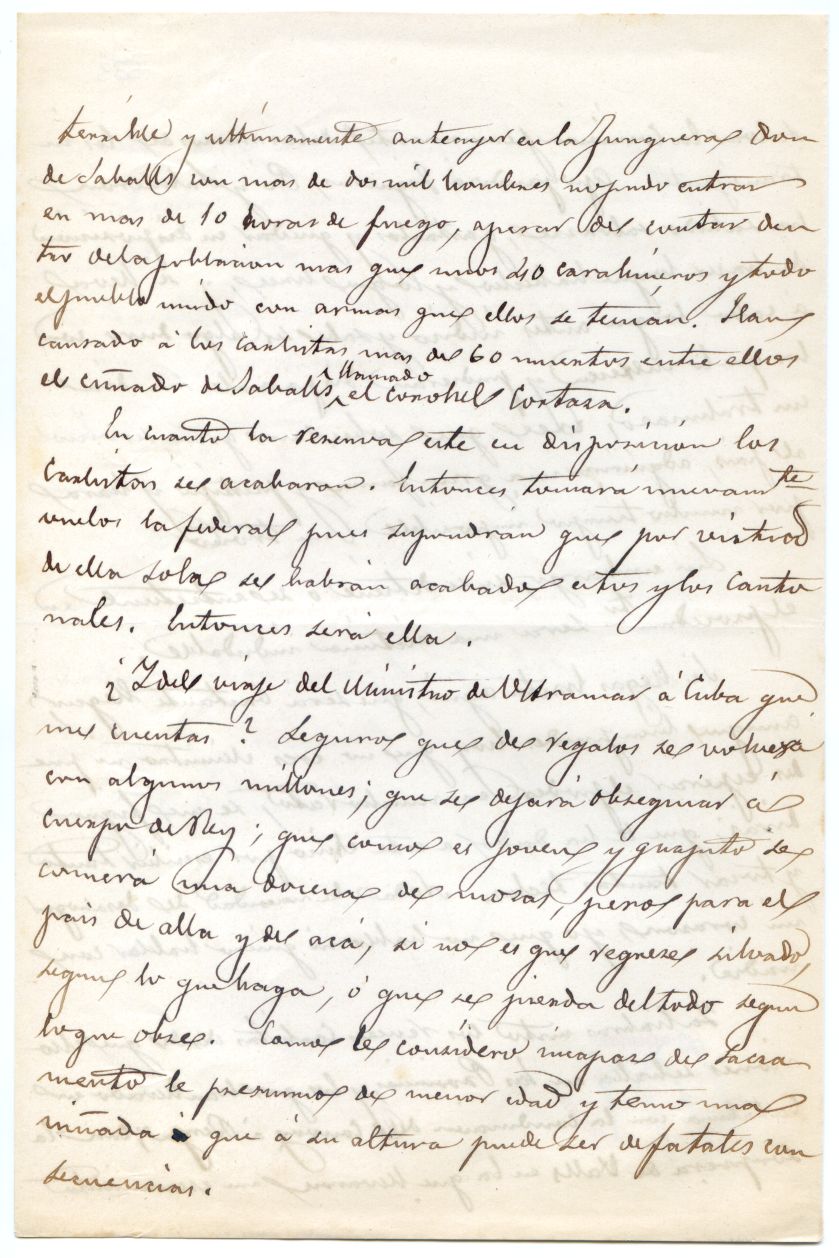 terrible y ultimamente anteayer en la Junquera don
de Saballs con mas de dos mil hombres no pudo entrar
en mas de 10 horas de fuego, apesar de contar den
tro de la poblacion mas que unos 40 carabineros y todo
el pueblo unido con armas que ellos se tenian. Han
causado á los carlistas mas de 60 muertos entre ellos
el cuñado de Saballs, llamado el coronel Cortaza.
En cuanto la reserva este en disposicion los
Carlistas se acabaron. Entonces tomará nuevamte
vuelos la federal pues supondrán que por virtud
de ella sola se habrán acabado estos y los canto
nales. Entonces será ella.
¿Y del viaje del Ministro de Ultramar á Cuba que
me cuentas? Seguro que de regalos se volverá
con algunos millones; que se dejará obsequiar á
cuerpo de Rey; que como es joven y guapito se
comerá una docena de mozas, pero para el
pais de alla y de acá, si no es que regrese silvado,
segun lo que haga, ó que se pierda del todo segun
lo que obre. Como le considero incapaz de sacra
mento le presumo de menor edad y temo una
niñada que á su altura puede ser de fatales con
secuencias.